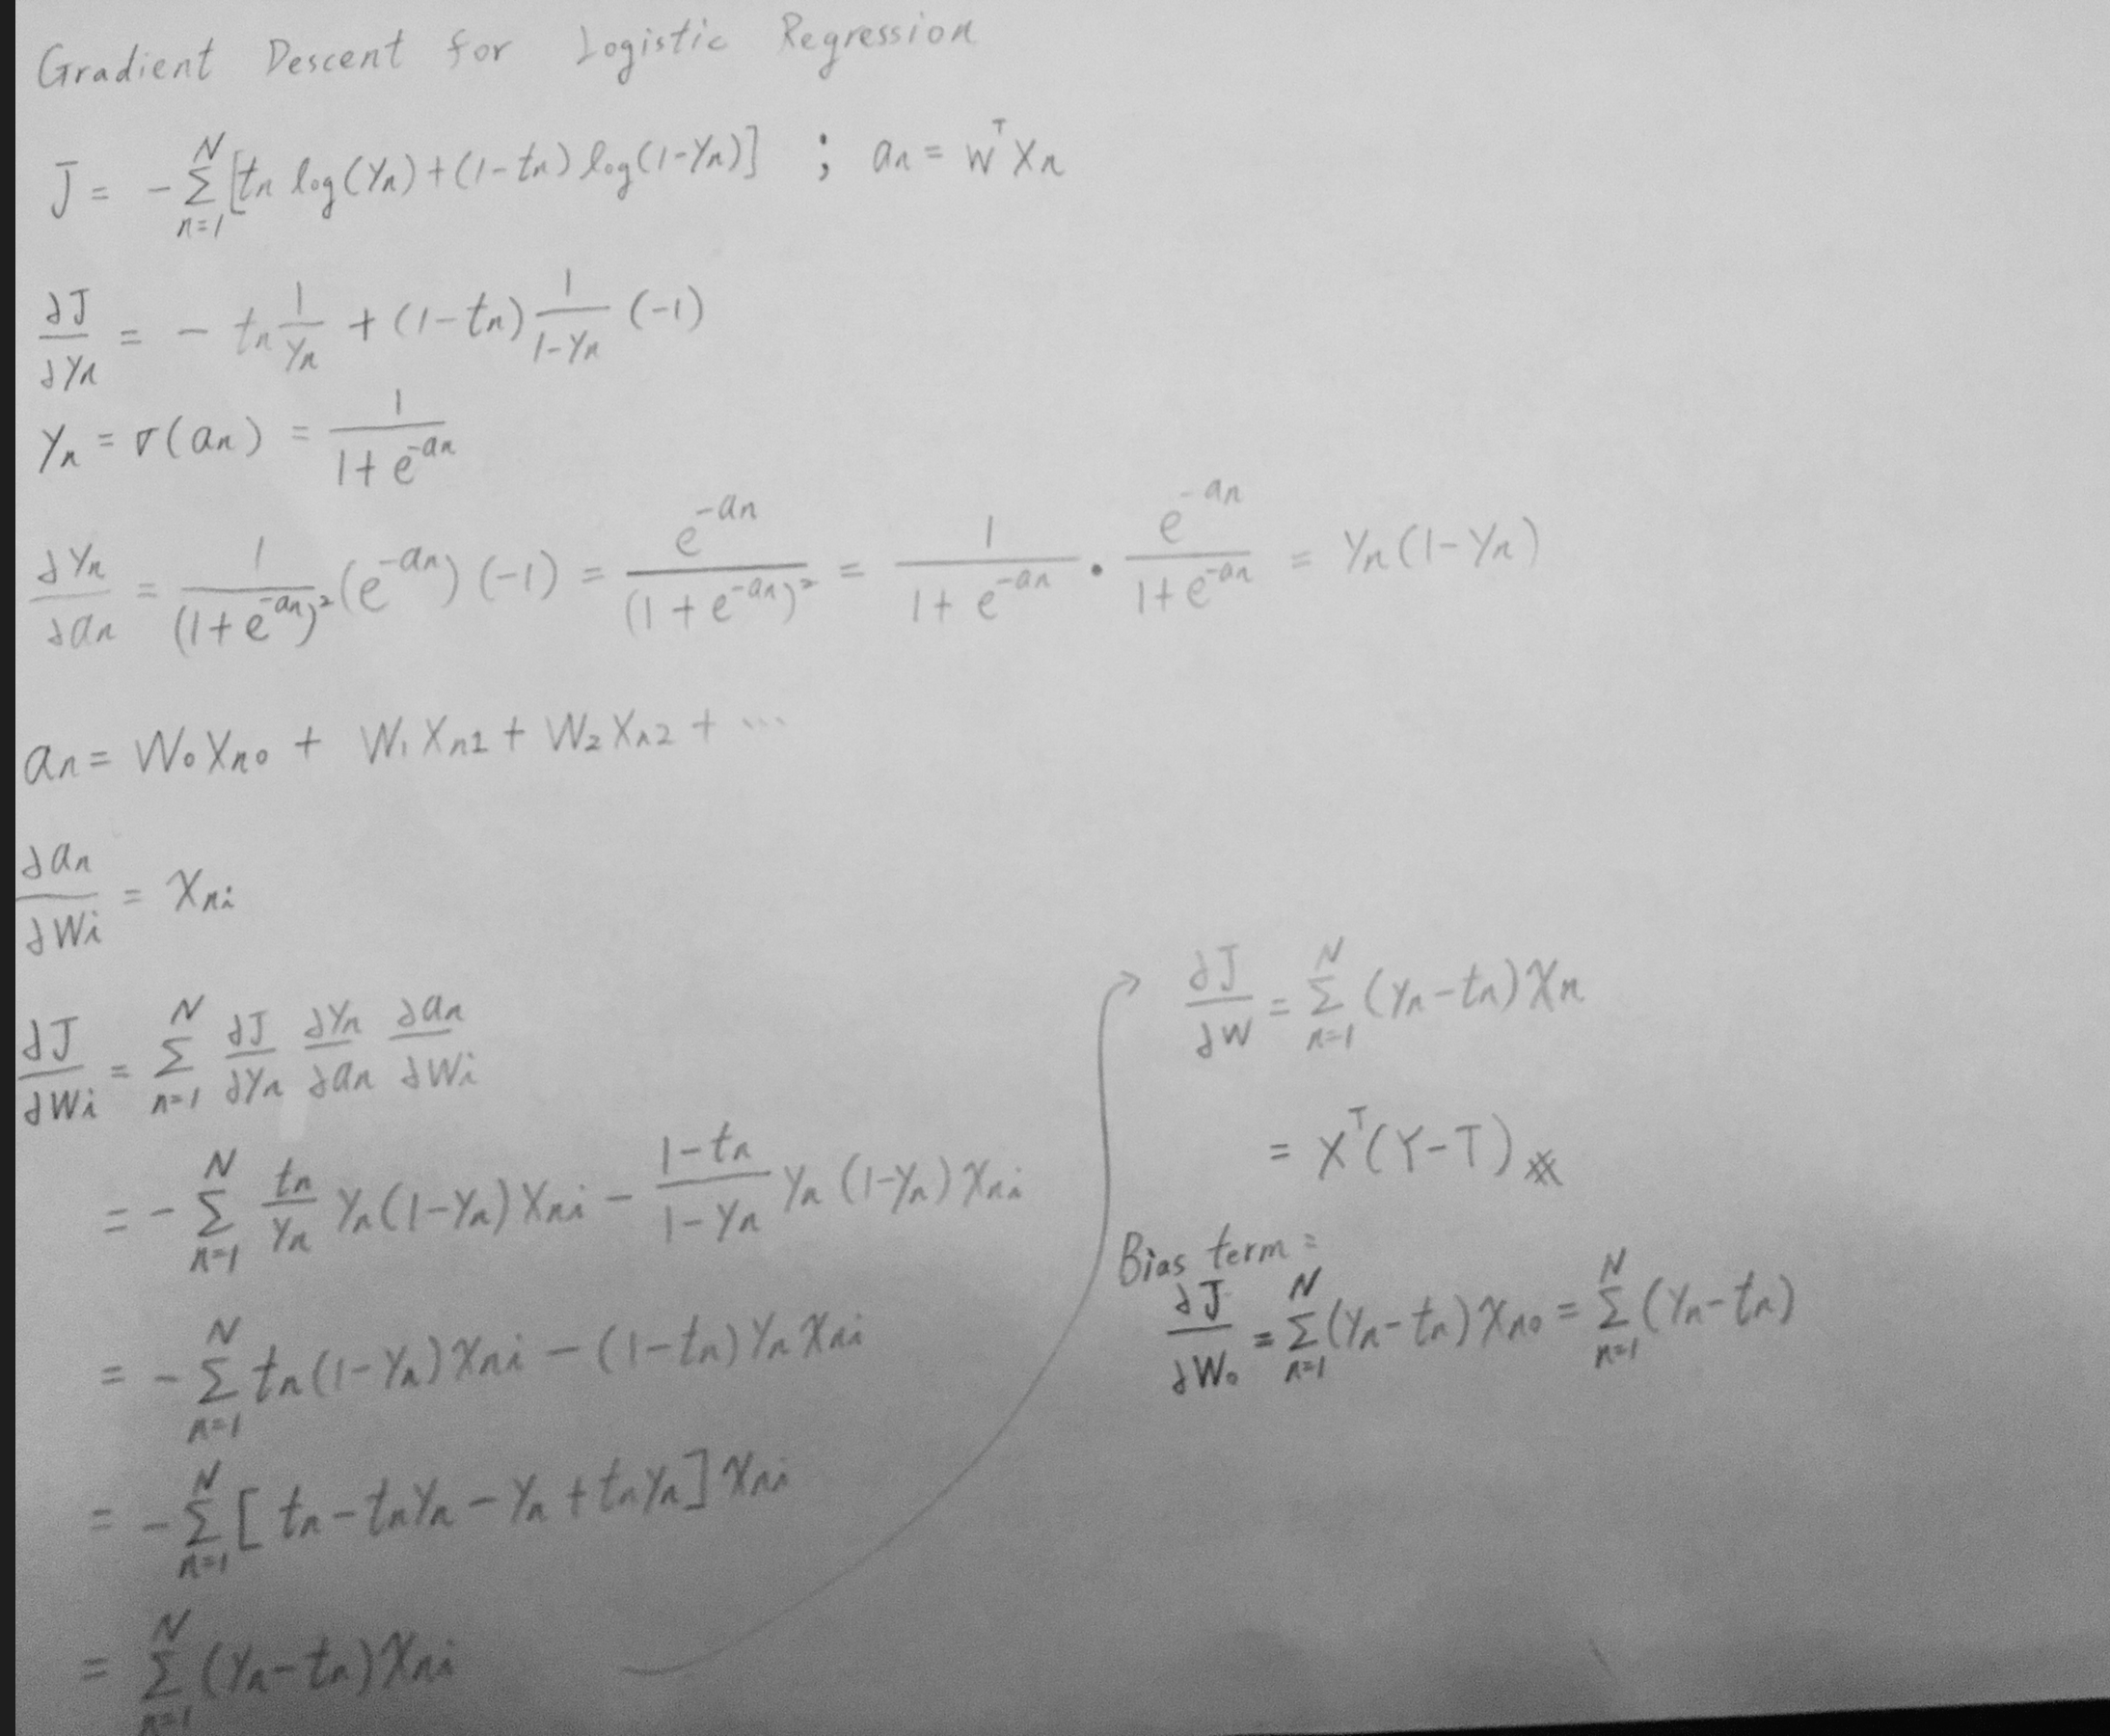 Gradient Descent for Logistic Regression
J = -∑_{n=1}^{N} [tn log(yn) + (1-tn) log(1-yn)] ; an = w^T xn
∂J/∂yn = - tn 1/yn + (1-tn) 1/(1-yn) (-1)
yn = σ(an) = 1/(1+e^{-an})
∂yn/∂an = 1/(1+e^{-an})² (e^{-an}) (-1) = e^{-an}/(1+e^{-an})² = 1/(1+e^{-an}) · e^{-an}/(1+e^{-an}) = yn(1-yn)
an = W0 Xn0 + W1 Xn1 + W2 Xn2 + ...
∂an/∂Wi = Xni
∂J/∂Wi = ∑_{n=1}^{N} ∂J/∂yn ∂yn/∂an ∂an/∂Wi
= -∑_{n=1}^{N} tn/yn yn(1-yn) Xni - (1-tn)/(1-yn) yn (1-yn) Xni
= -∑_{n=1}^{N} tn(1-yn) Xni - (1-tn) yn Xni
= -∑_{n=1}^{N} [ tn - tnyn - yn + tnyn ] Xni
= ∑_{n=1}^{N} (yn-tn) Xni
→ ∂J/∂W = ∑_{n=1}^{N} (yn-tn) Xn
= X^T(Y-T) #
Bias term:
∂J/∂W0 = ∑_{n=1}^{N} (yn-tn) Xn0 = ∑_{n=1}^{N} (yn-tn)